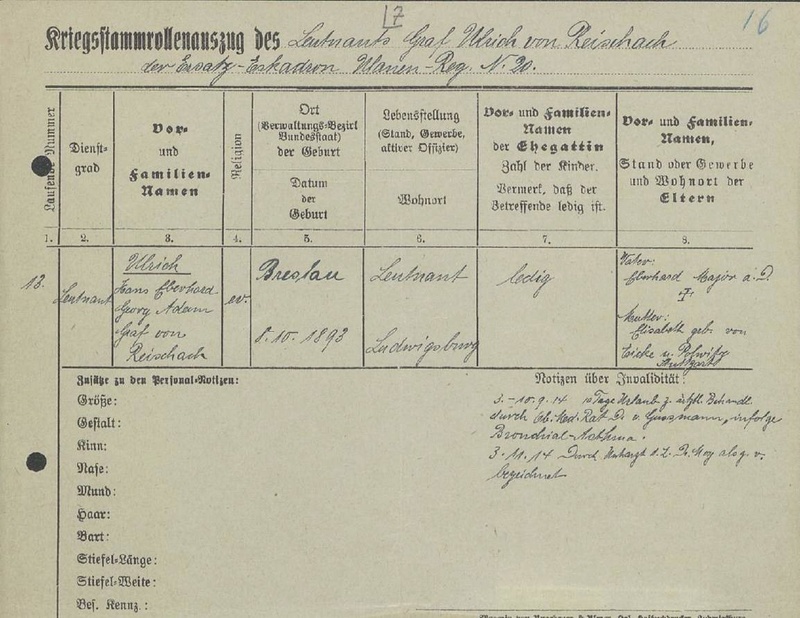 17
16
Kriegsstammrollenauszug des Leutnants Graf Ulrich von Reischach
der Ersatz-Eskadron Ulanen-Reg. Nr. 20.
Laufende Nummer
Dienst-
grad
Vor-
und
Familien-
Namen
Religion
Ort
(Verwaltungs-Bezirk
Bundesstaat)
der Geburt
Datum
der
Geburt
Lebensstellung
(Stand, Gewerbe,
aktiver Offizier)
Wohnort
Vor- und Familien-
Namen
der Ehegattin
Zahl der Kinder.
Vermerk, daß der
Betreffende ledig ist.
Vor- und Familien-
Namen,
Stand oder Gewerbe
und Wohnort der
Eltern
1. 2. 3. 4. 5. 6. 7. 8.
13.
Leutnant
Ulrich
Hans Eberhard
Georg Adam
Graf von
Reischach
ev.
Breslau
8.10.1893
Leutnant
Ludwigsburg
ledig
Vater:
Eberhard Major a. D.
Mutter:
Elisabeth geb. von
Stuttgart
Zusätze zu den Personal-Notizen:
Größe:
Gestalt:
Kinn:
Nase:
Mund:
Haar:
Bart:
Stiefel-Länge:
Stiefel-Weite:
Bes. Kennz.:
Notizen über Invalidität:
3.-10.9.14 Tage Urlaub z. ärztl. Behandl.
durch Ob. Med. Rat Dr. v. Gussmann, infolge
Bronchial-Asthma.
3.11.14 Durch als g. v.
bezeichnet